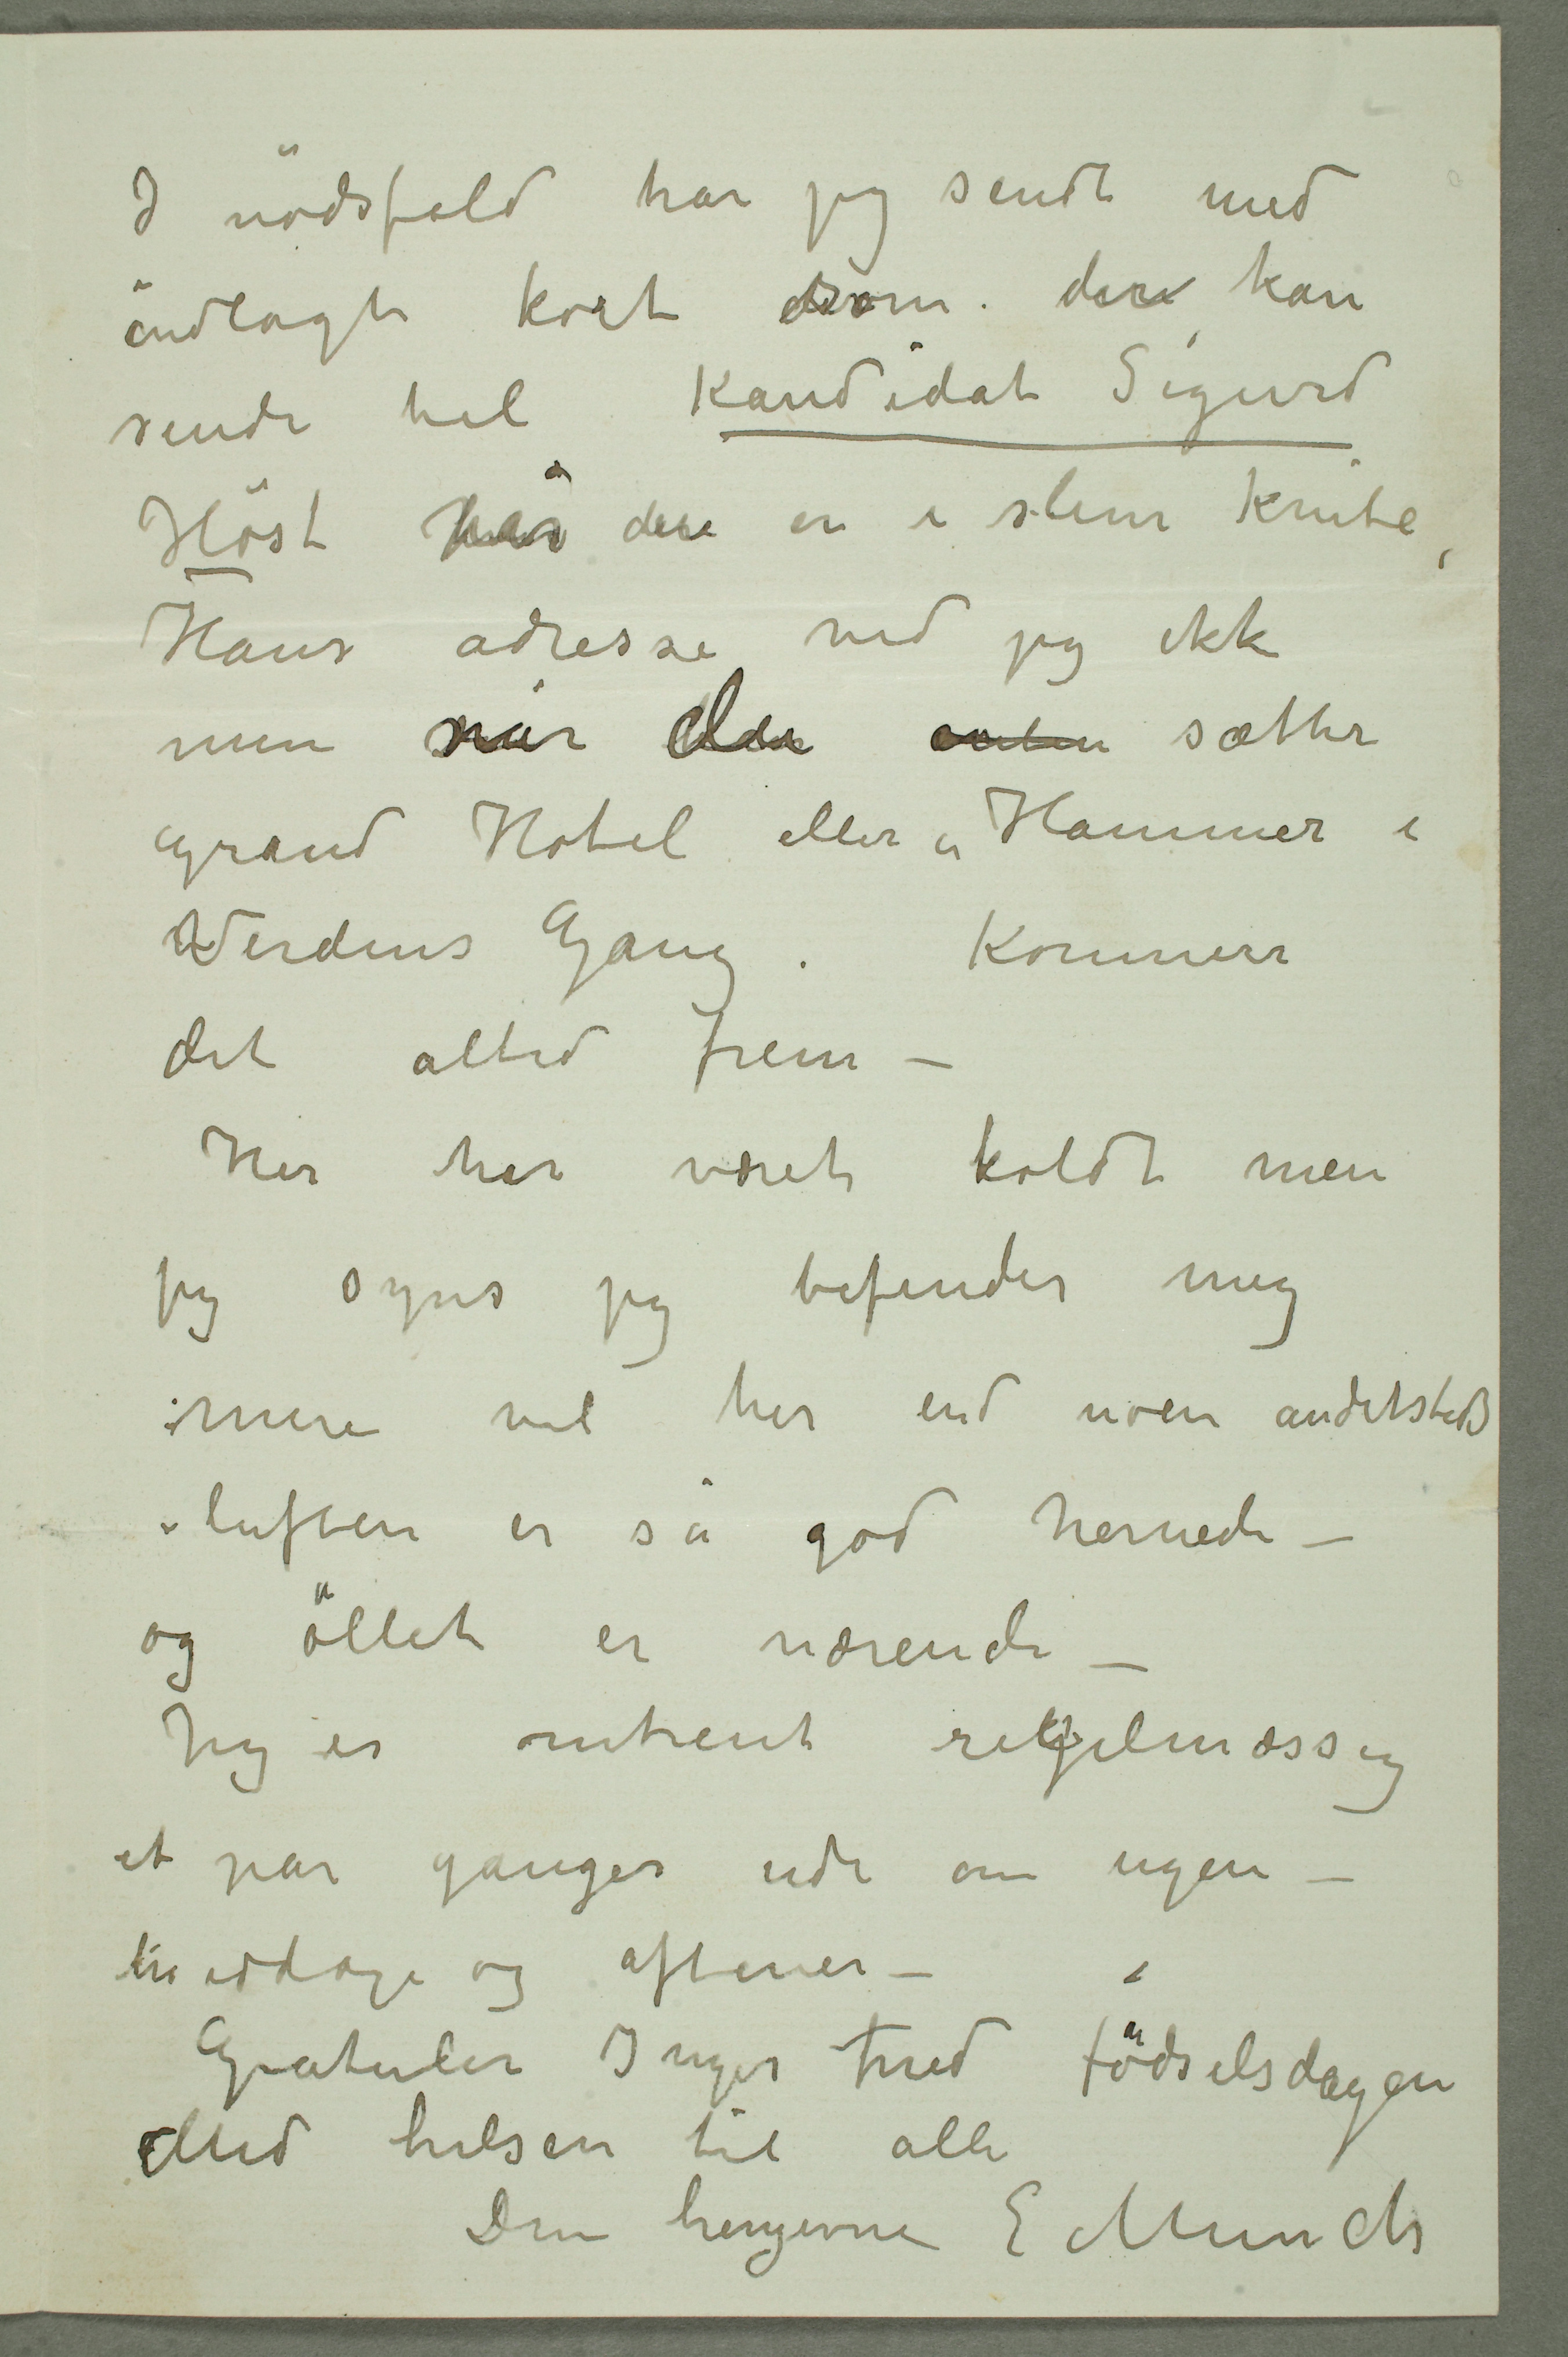 I nödsfald har jeg sendt med
indlagte kort som dere kan
sende til Kandidat Sigurd
Höst når dere er i slem Knibe,
Hans adresse ved jeg ikke
men når dere enten sætter
Grand Hotel eller Hammer i
Verdens Gang. Kommer
det altid frem –
Her har været koldt men
jeg synes jeg befinder mig
mere vel her end noen andetsteds
– luften er så god hernede –
og öllet er nærende –
Jeg er omtrent regelmæssig
et par ganger ude om ugen –
middage og aftener –
Gratuler Inger med födselsdagen
Med hilsen til alle
Din hengivne E Munch